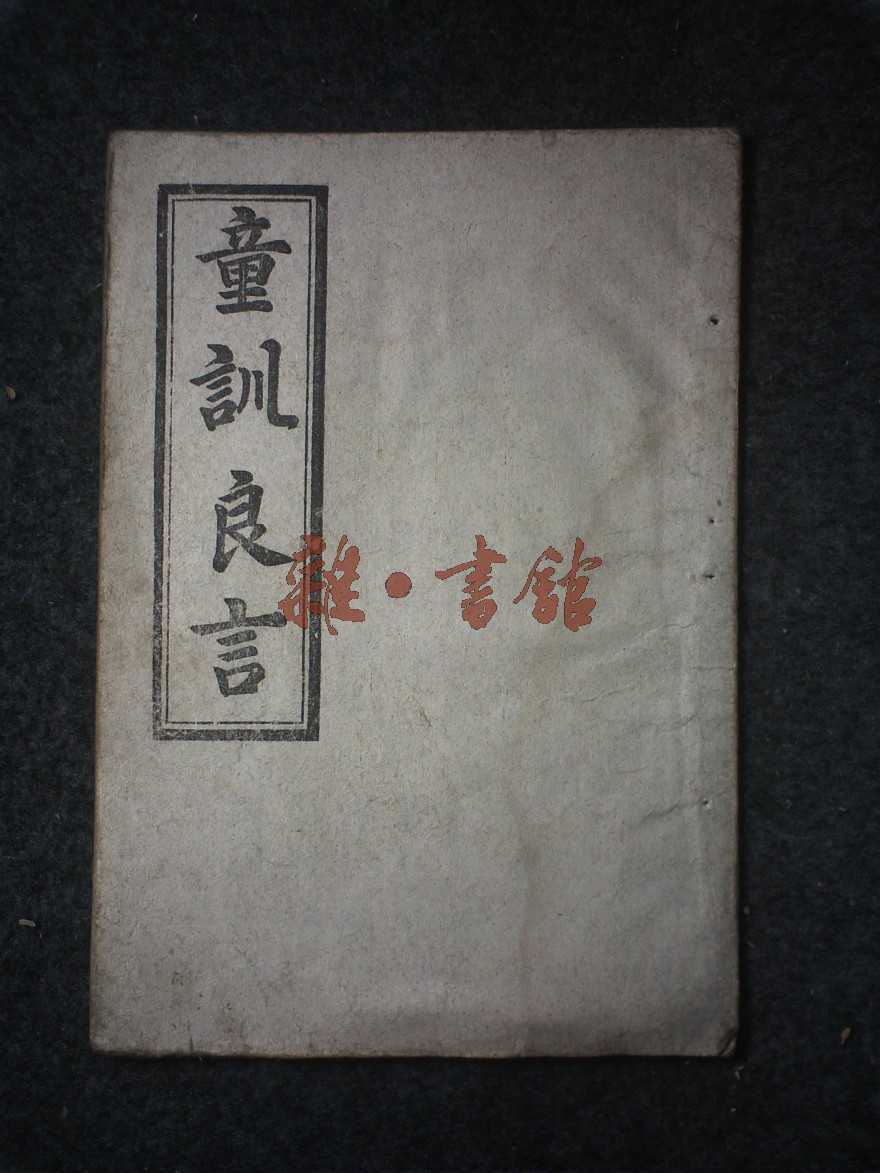 童訓良言
雜·書館